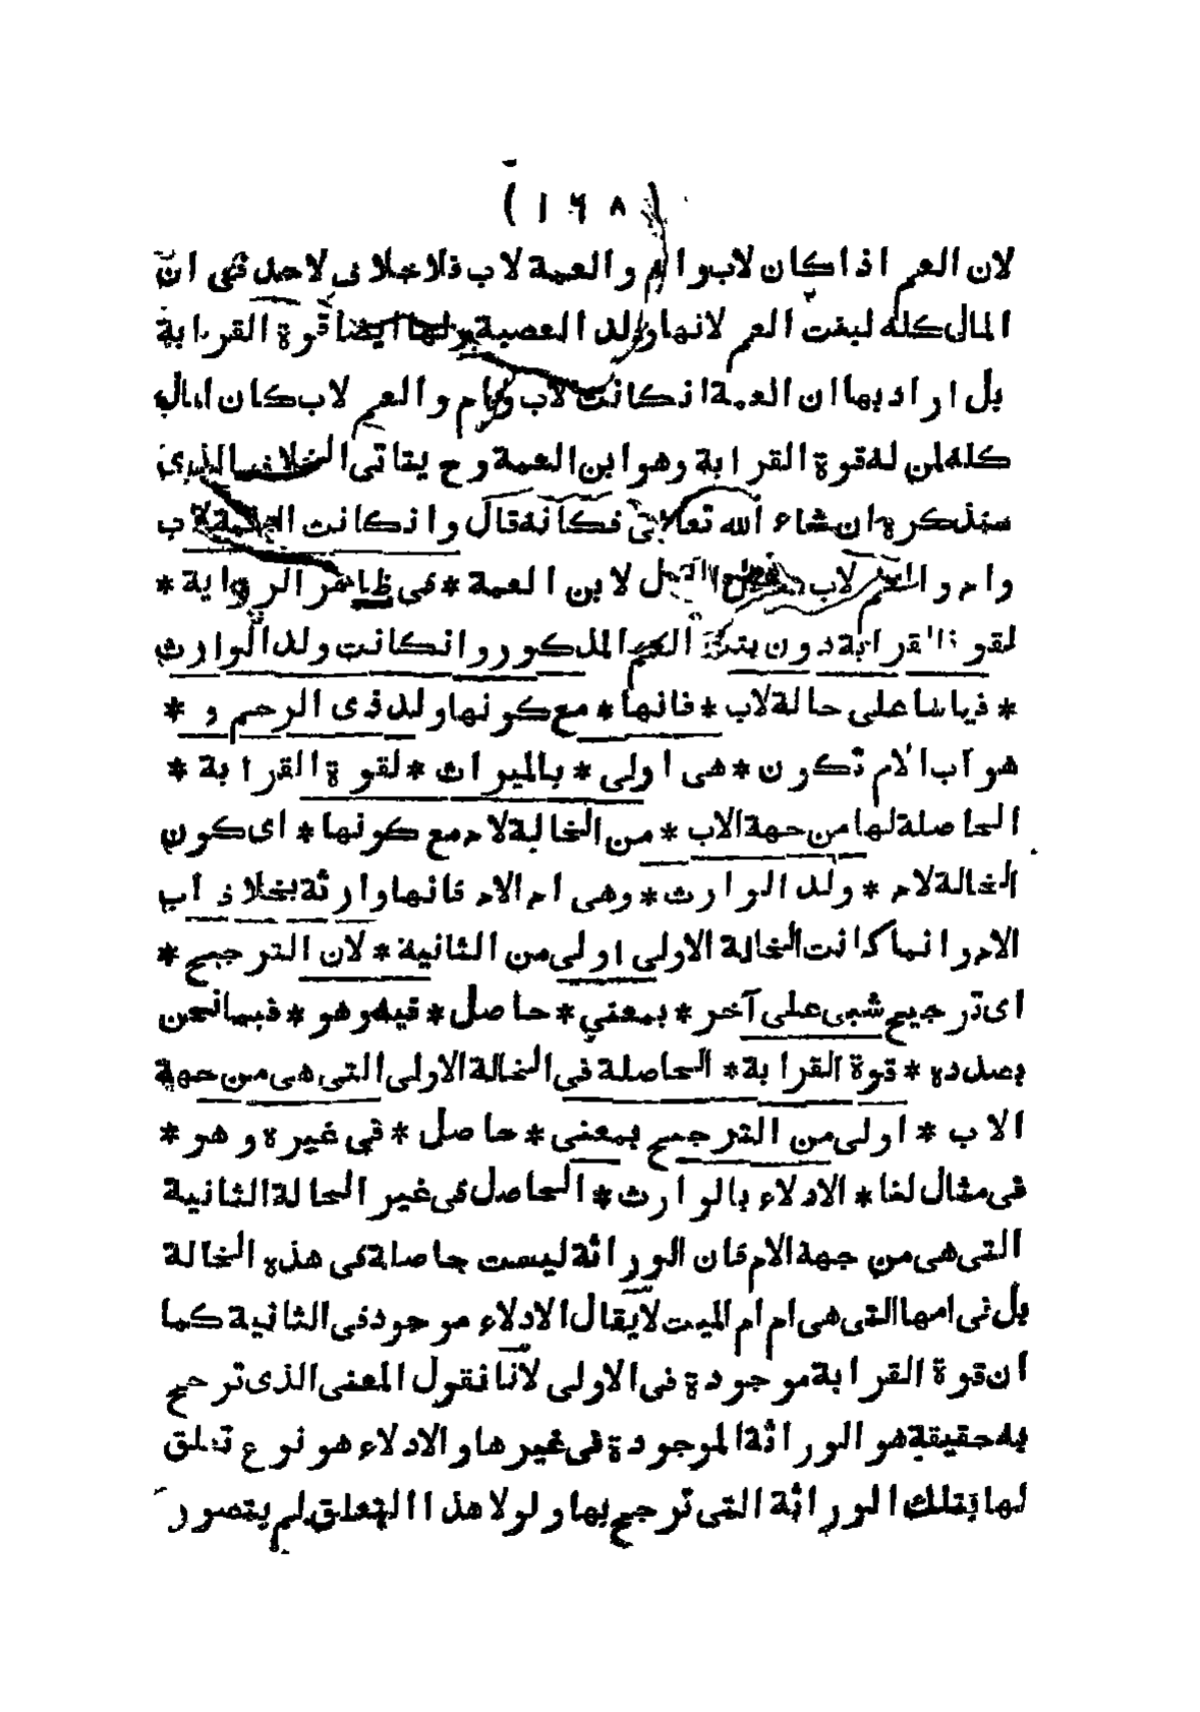 ( ١٦٨ )
لان العم اذا كان لاب وام والعمة لاب فلا خلاف لاحد فى ان
المال كله لبنت العم لانها ولد العصبة ولها ايضا قوة القرابة
بل اراد بها ان العمة انكانت لاب وام والعم لاب كان المال
كله لمن له قوة القرابة وهو ابن العمة وح يتاتى الخلاف الذى
سنذكره ان شاء الله تعالى فكانه قال وانكانت العمة لاب
وام والعم لاب لابن العمة * فى ظاهر الرواية *
لقوة القرابة دون بنت العم المذكور وانكانت ولد الوارث
* قياسا على خالة لاب * فانها * مع كونها ولد ذى الرحم و *
هو اب الام تكون * هى اولى * بالميراث * لقوة القرابة *
الحاصلة لها من جهة الاب * من الخالة لام مع كونها * اى كون
الخالة لام * ولد الوارث * وهى ام الام فانها وارثة بخلاف اب
الام وانما كانت الخالة الاولى اولى من الثانية * لان الترجيح *
اى ترجيح شيى على آخر * بمعني * حاصل * فيه وهو * فيما نحن
بصدده * قوة القرابة * الحاصلة فى الخالة الاولى التى هى من جهة
الاب * اولى من الترجيح بمعنى * حاصل * في غيره وهو *
فى مثال لنا * الادلاء بالوارث * الحاصل فى غير الحالة الثانية
التى هى من جهة الام فان الوراثة ليست حاصلة فى هذه الخالة
بل فى امها التى هى ام ام الميت لا يقال الادلاء موجود فى الثانية كما
ان قوة القرابة موجودة فى الاولى لانا نقول المعنى الذى ترجح
به حقيقة هو الوراثة الموجودة فى غيرها والادلاء هو نوع تعلق
لها بتلك الوراثة التى ترجح بها ولولا هذا التعلق لم يتصور